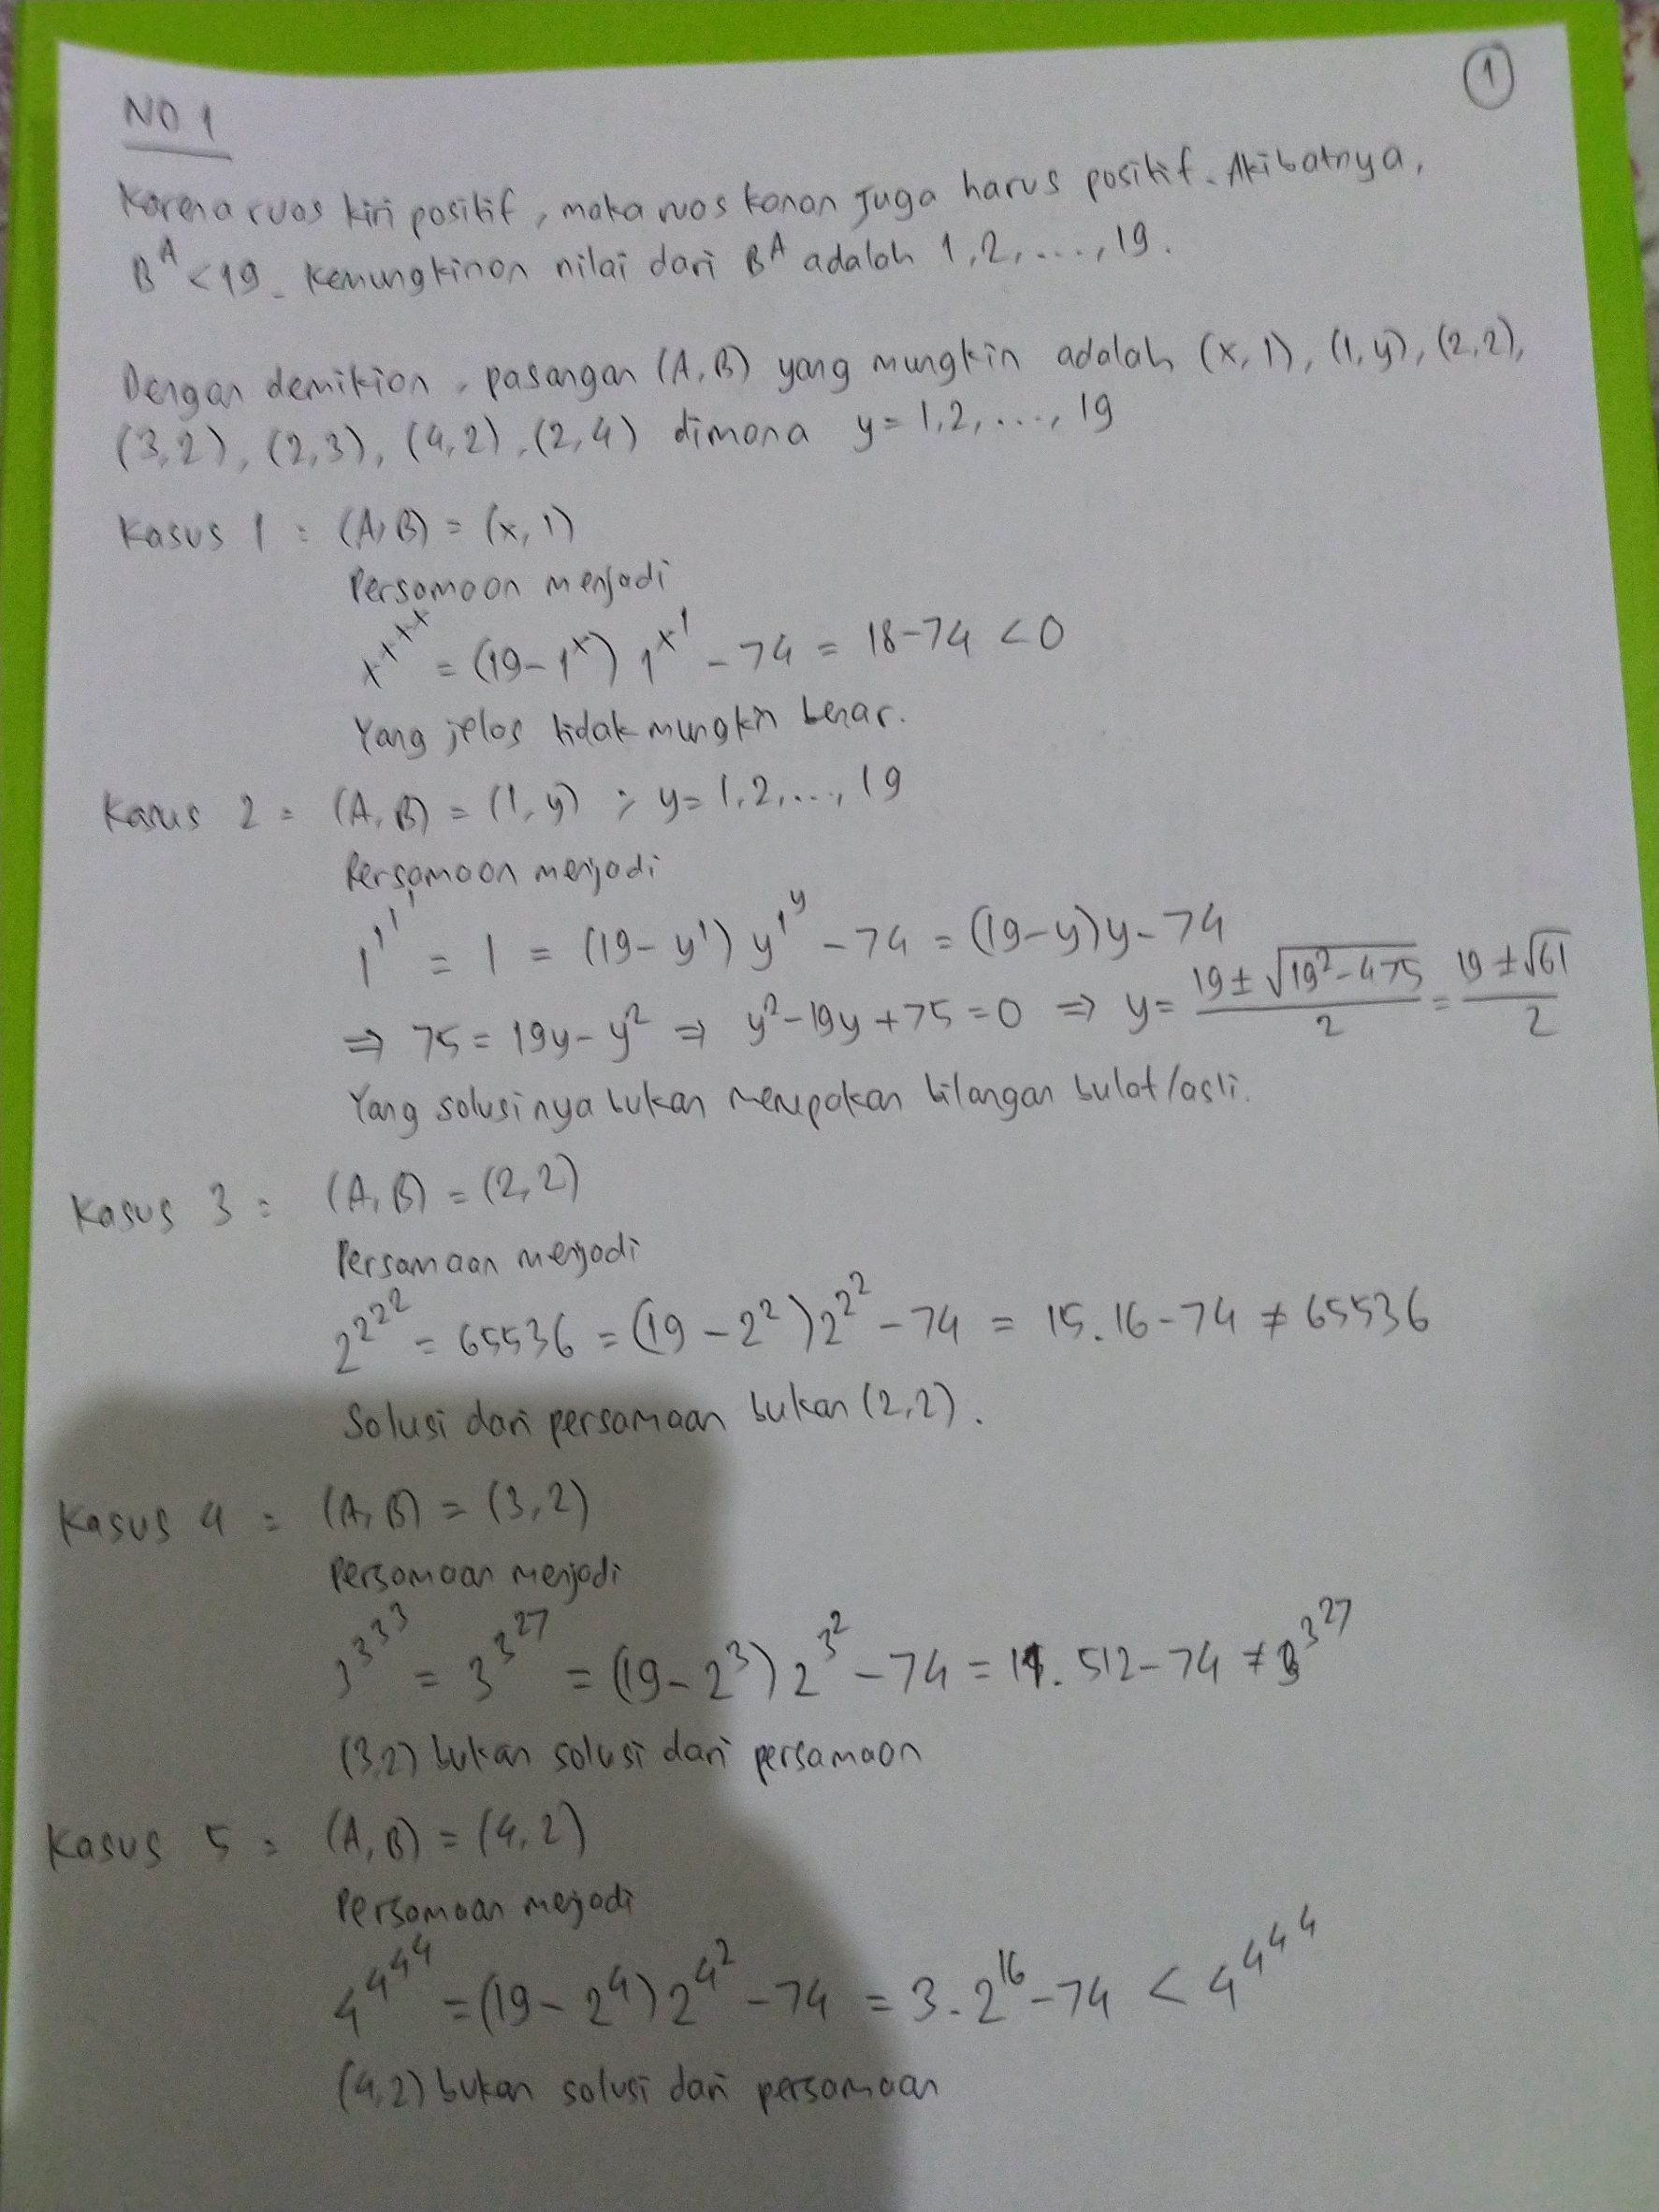 ①
NO 1
Karena ruas kiri positif, maka ruas kanan juga harus positif. Akibatnya,
B^A < 19. Kemungkinan nilai dari B^A adalah 1, 2, ...., 19.
Dengan demikian, pasangan (A, B) yang mungkin adalah (x, 1), (1, y), (2,2),
(3,2), (2,3), (4,2), (2,4) dimana y = 1,2, ...., 19
Kasus 1 : (A, B) = (x, 1)
Persamaan menjadi
x^{x^{x^x}} = (19 - 1^x) 1^{x^1} - 74 = 18 - 74 < 0
Yang jelas tidak mungkin benar.
Kasus 2 = (A, B) = (1, y) ; y = 1, 2, ..., 19
Persamaan menjadi
1^{1^{1^1}} = 1 = (19 - y^1) y^{1^y} - 74 = (19 - y) y - 74
⇒ 75 = 19y - y^2 ⇒ y^2 - 19y + 75 = 0 ⇒ y = \frac{19 ± √(19^2 - 4 75)}{2} = \frac{19 ± √61}{2}
Yang solusinya bukan merupakan bilangan bulat/asli.
Kasus 3 = (A, B) = (2, 2)
Persamaan menjadi
2^{2^{2^2}} = 65536 = (19 - 2^2) 2^{2^2} - 74 = 15 . 16 - 74 ≠ 65536
Solusi dari persamaan bukan (2,2).
Kasus 4 = (A, B) = (3, 2)
Persamaan menjadi
3^{3^{3^3}} = 3^{3^{27}} = (19 - 2^3) 2^{3^2} - 74 = 11 . 512 - 74 ≠ 3^{3^{27}}
(3,2) bukan solusi dari persamaan
Kasus 5 = (A, B) = (4, 2)
Persamaan menjadi
4^{4^{4^4}} = (19 - 2^4) 2^{4^2} - 74 = 3 . 2^{16} - 74 < 4^{4^{4^4}}
(4,2) bukan solusi dari persamaan